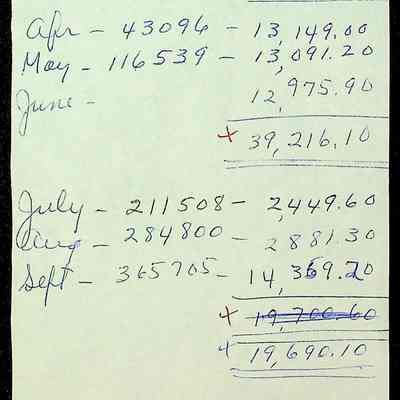 Apr - 43096 - 13,149.00
May - 116539 - 13,091.20
June - 12,975.90
+ 39,216.10
July - 211508 - 2,449.60
Aug - 284800 - 2881.30
Sept - 365705 - 14,359.20
+ 19,700.60
+ 19,690.10